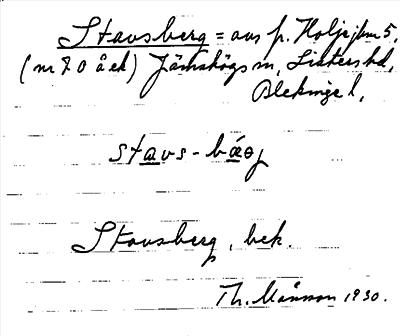 Stavsberg = avs p. Holjejhm 5,
(nr 70 å ek) Jämshögs sn, Listers hd,
Blekinge l,
stavs-bærj
Stavsberg, bek.
Th. Månsson 1930.